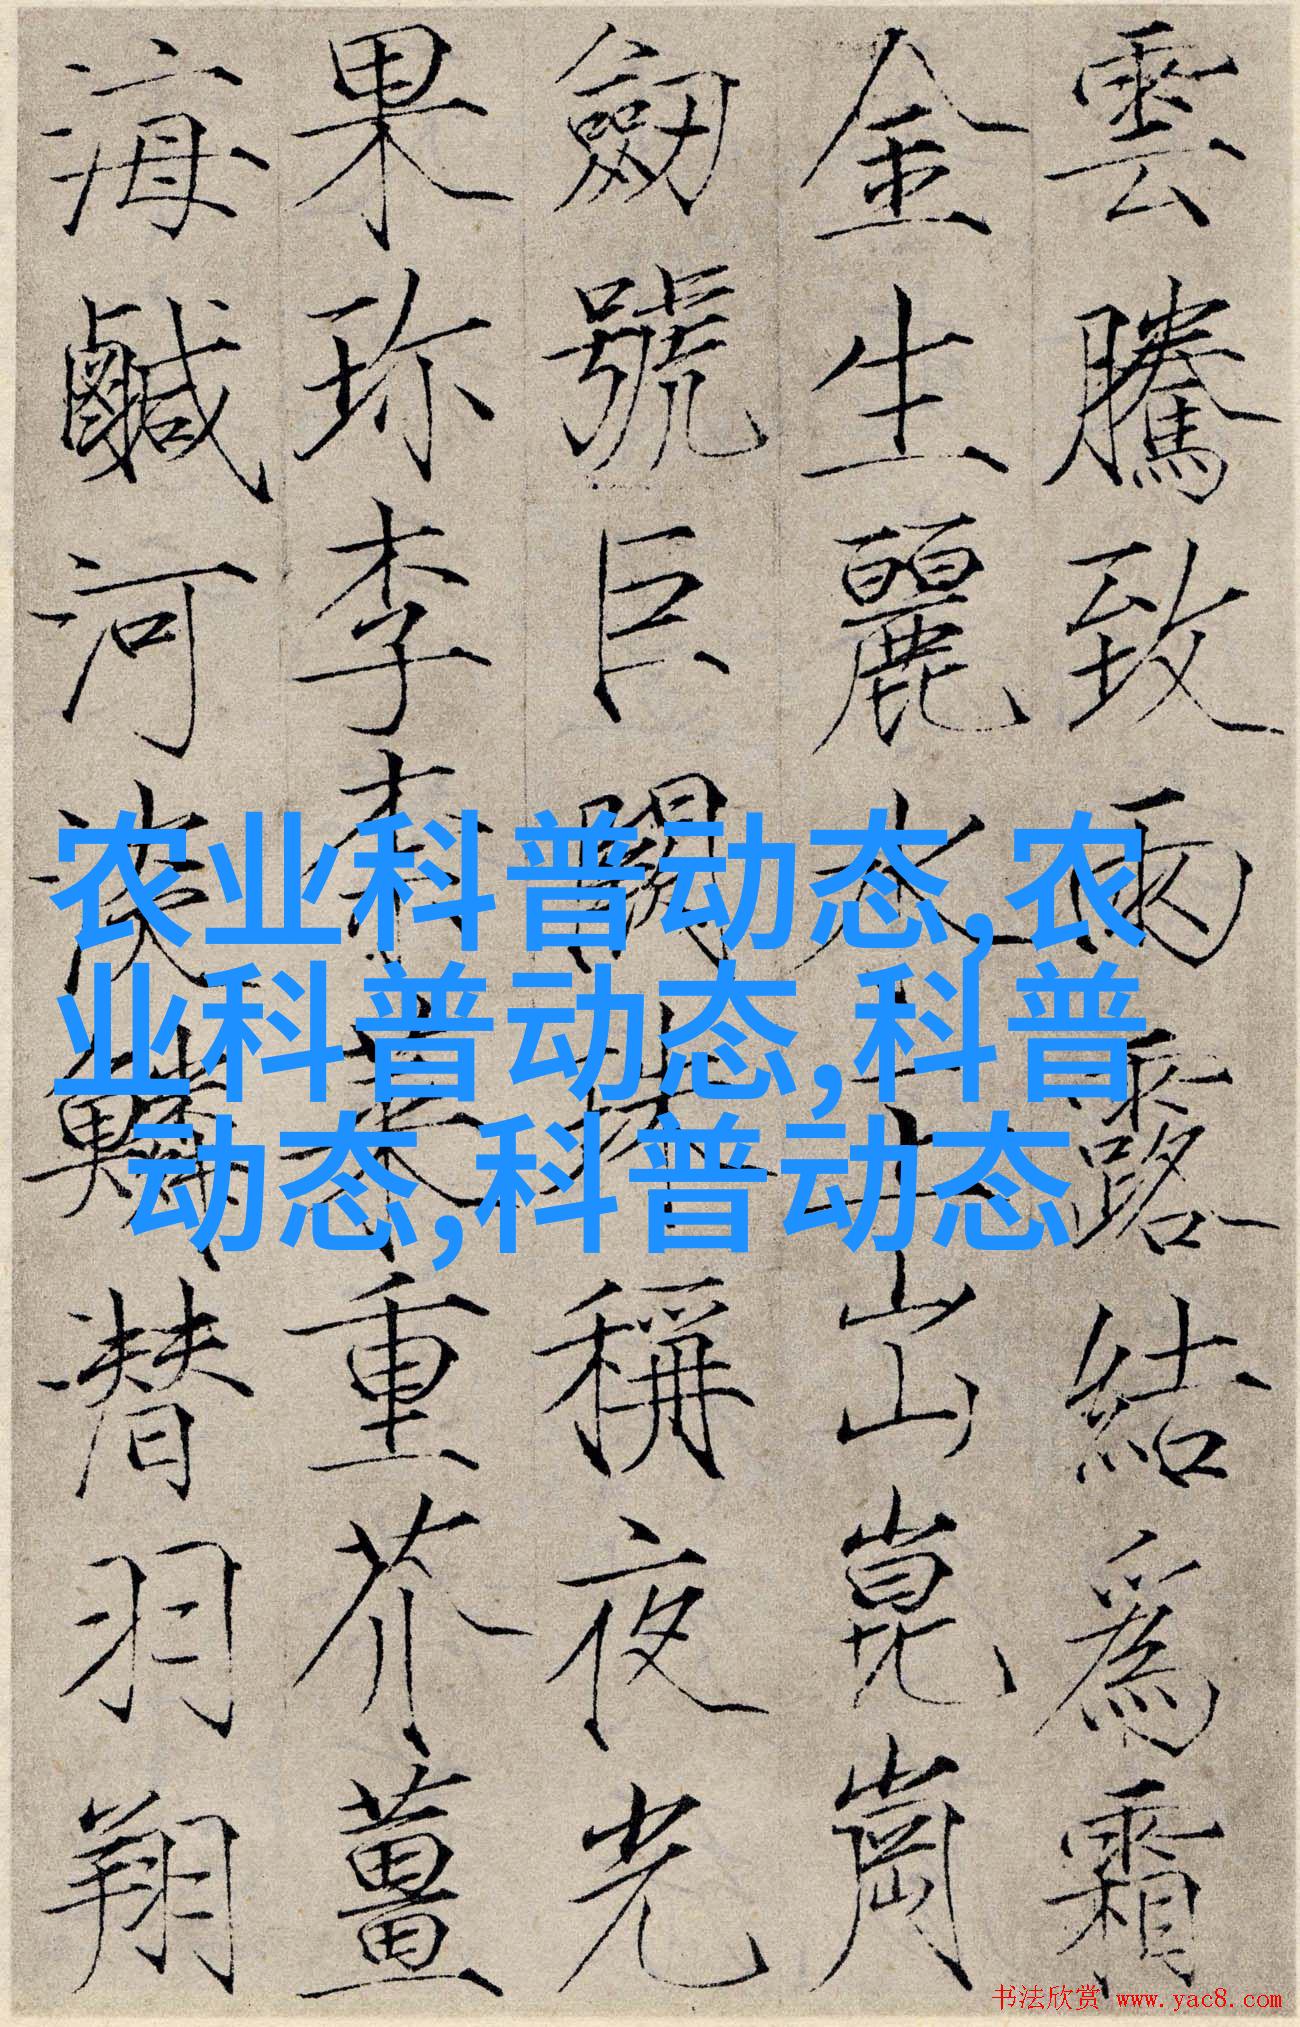 雲騰致雨露結爲霜
金生麗水玉出崑崗
劒號巨闕珠稱夜光
果珎李柰菜重芥薑
海鹹河淡鱗潜羽翔
农业科普动态,农
业科普动态,科普
动态,科普动态
书法欣赏 www.yac8.com